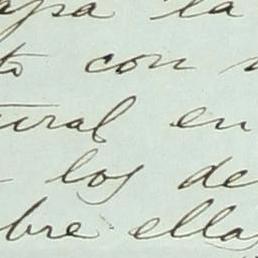 apa la
to con
ural en
los de
bre ellas